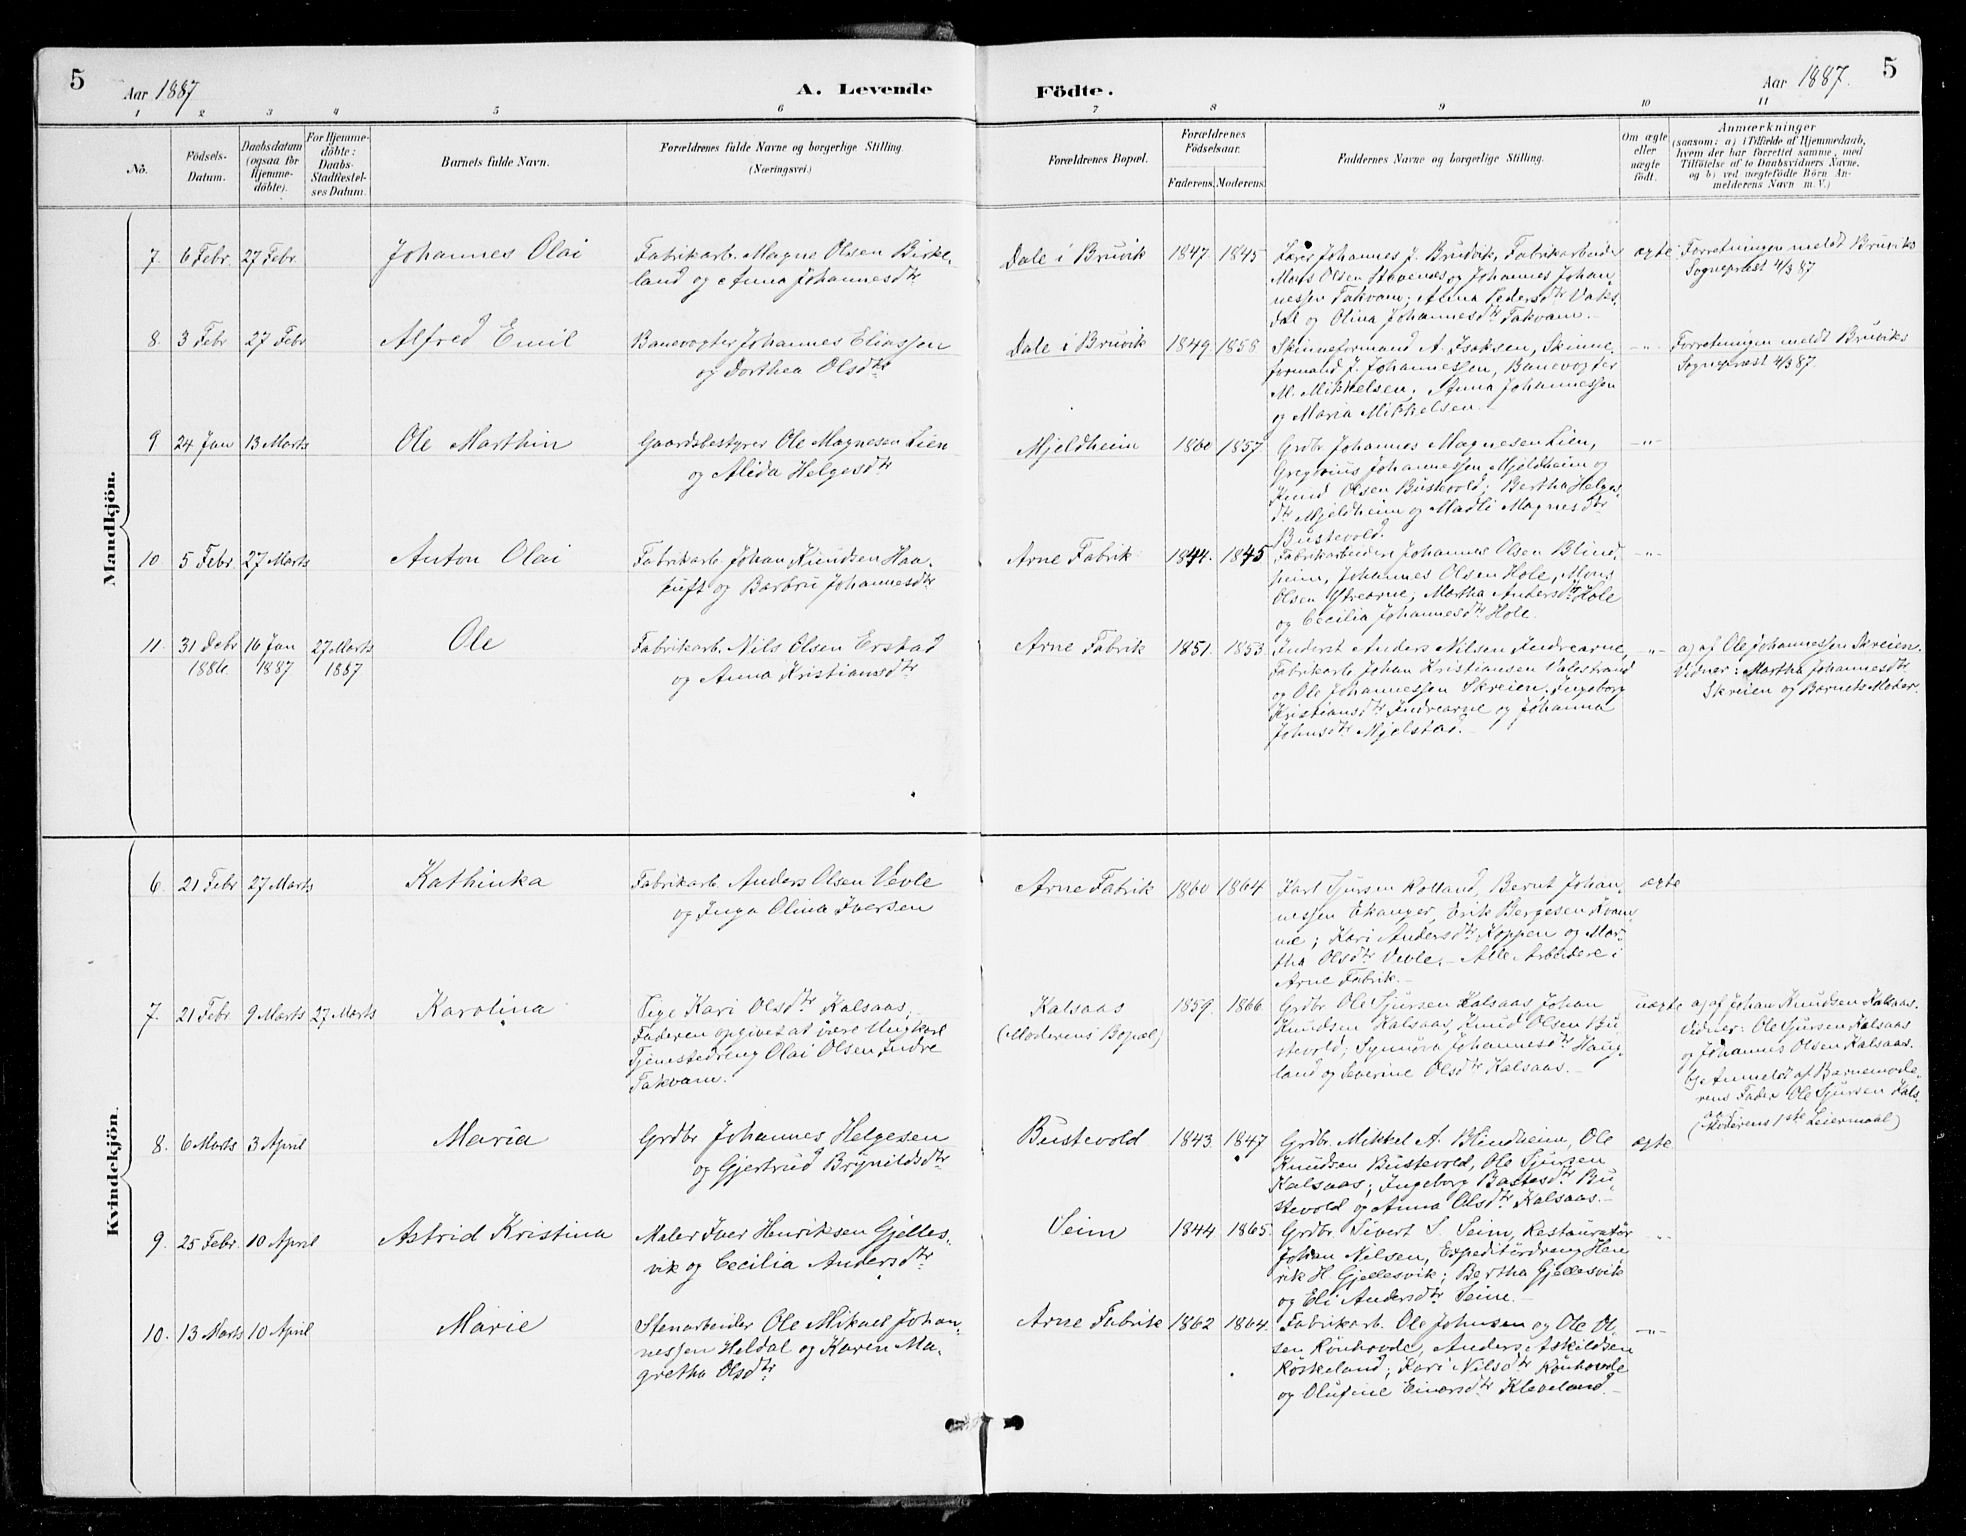 5
Aar 1887
A. Levende
Födte.
Aar 1887.
5
1 2 3 4 5 6 7 8 9 10 11
No.
Födsels-
Datum.
Daabsdatum
(ogsaa för
Hjemme-
döbte).
For Hjemme-
döbte:
Daabs-
Stadfæstel-
ses Datum.
Barnets fulde Navn.
Forældrenes fulde Navne og borgerlige Stilling.
(Næringsvei.)
Forældrenes Bopæl.
Forældrenes
Födselsaar.
Faderens. Moderens.
Faddernes Navne og borgerlige Stilling.
Om ægte
eller
uægte
födt.
Anmærkninger
(saasom: a) i Tilfælde af Hjemmedaab,
hvem der har forrettet samme, med
Tilföielse af to Daabsvidners Navne,
og b) ved uægtefödte Börn An-
melderens Navn m. V.)
Mandkjön.
7. 6 Febr. 27 Febr.
Johannes Olai
Fabrikarb. Magne Olsen Birke-
land og Anna Johannesdtr
Dale i Bruvik
1847. 1845
Lærer Johannes J. Brudvik, Fabrikarbeider
Mons Olsen Stavenes og Johannes Johan-
nessen Takvam; Alina Pedersdtr Vaks-
dal og Olina Johannesdtr Takvam.
ægte
Forretningen meldt Bruviks
Sognepræst 4/3 87
8. 3 Febr 27 Febr
Alfred Emil
Banevogter Johannes Eliassen
og Dorthea Olsdtr
Dale i Bruvik
1849 1858
Skinneformand A. Isaksen, Skinne-
formand J. Johannessen, Banevogter
M. Mikkelsen. Anna Johannessen
og Maria Mikkelsen.
-"-
Forretningen meldt Bruviks
Sognepræst 4/3 87.
9 24 Jan 13 Marts
Ole Marthin
Gaardsbestyrer Ole Magnesen Lien
og Alida Helgesdtr
Mjeldheim
1860 1857
Grdbr Johannes Magnesen Lien,
Gregorius Johannessen Mjeldheim og
Knud Olsen Bustevold; Bertha Helges-
dtr Mjeldheim og Madli Magnesdtr
Bustevold.
-"-
10. 5 Febr. 27 Marts
Anton Olai
Fabrikarb. Johan Knudsen Haa-
tuft og Barbru Johannesdtr
Arne Fabrik
1844. 1845
Fabrikarbeidere Johannes Olsen Blind-
heim, Johannes Olsen Hole, Mons
Olsen Ytrearne; Martha Andersdtr Hole
og Cecilia Johannesdtr Hole.
-"-
11. 31 Debr 16 Jan 27 Marts
1886. 1887 1887
Ole
Fabrikarb. Nils Olsen Erstad
og Anna Kristiansdtr
Arne Fabrik
1851. 1853
Inderst Anders Nilsen Indrearne,
Fabrikarb Johan Kristiansen Valestrand
og Ole Johannessen Skreien; Ingeborg
Kristiansdtr Indrearne og Johanna
Johnsdtr Mjelstad.
-"-
a) af Ole Johannessen Skreien.
Vidner: Martha Johannesdtr
Skreien og Barnets Moder.
Kvindekjön.
6. 21 Febr 27 Marts
Kathinka
Fabrikarb. Anders Olsen Vevle
og Inga Olina Iversen
Arne Fabrik
1860 1864
Karl Sjursen Rolland, Bernt Johan-
nessen Ekanger, Erik Bergesen Kvam-
me; Kari Andersdtr Koppen og Mar-
tha Olsdtr Vevle. - Alle Arbeidere i
Arne Fabrik.
ægte
7. 21 Febr. 9 Marts 27 Marts
Karolina
Pige Kari Olsdtr Kalsaas,
Faderen opgivet at være Ungkarl
Tjenestedreng Olai Olsen Indre
Takvam.
Kalsaas
(Moderens Bopæl)
1859. 1866
Grdbr Ole Sjursen Kalsaas, Johan
Knudsen Kalsaas, Knud Olsen Bu-
stevold; Synnöva Johannesdtr Haug-
land og Severine Olsdtr Kalsaas.
uægte
a) af Johan Knudsen Kalsaas.
Vidner: Ole Sjursen Kalsaas
og Johannes Olsen Kalsaas.
b) Anmeldt af Barnemode-
rens Fader Ole Sjursen Kals-
aas
(Moderens 1ste Leiermaal)
8. 6 Marts 3 April
Maria
Grdbr Johannes Helgesen
og Gjertrud Brynildsdtr
Bustevold
1843 1847
Grdbr. Mikkel A. Blindheim, Ole
Knudsen Bustevold, Ole Sjursen
Kalsaas; Ingeborg Bastesdtr Bu-
stevold og Anna Olsdtr Kalsaas.
ægte
9. 25 Febr. 10 April
Astrid Kristina
Maler Iver Henriksen Gjelles-
vik og Cecilia Andersdtr
Seim
1844 1865.
Grdbr. Sivert S. Seim, Restauratör
Johan Nilsen, Expeditördreng Hen-
rik H. Gjellesvik; Bertha Gjellesvik
og Eli Andersdtr Seim.
-"-
10. 13 Marts 10 April
Marie
Stenarbeider Ole Mikael Johan-
nessen Heldal og Karen Ma-
gretha Olsdtr
Arne Fabrik
1862 1864.
Fabrikarb. Ole Johnsen og Ole Ol-
sen Rönhovde, Anders Askildsen
Röskeland; Kari Nilsdtr Rönhovde
og Olufine Einarsdtr Kleveland.
-"-